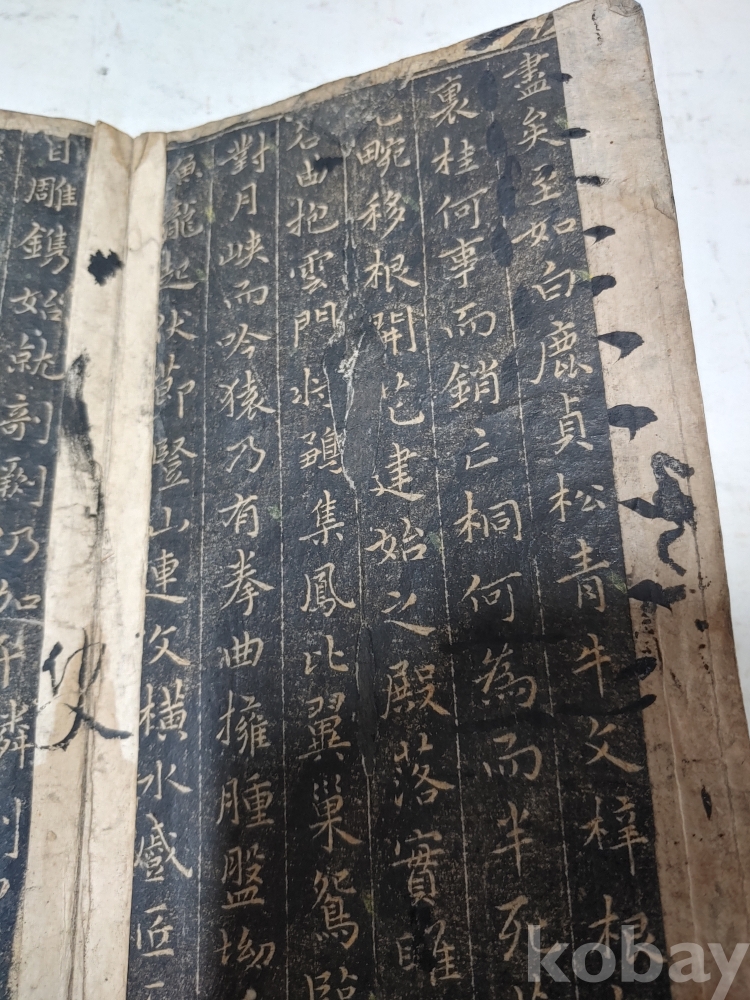 盡矣至如白鹿貞松青牛文梓根
裏桂何事而銷亡桐何為而半死
畹移根開花建始之殿落實睢
曲抱雲門將鶵集鳳比翼巢鴛臨
對月峽而吟猿乃有拳曲擁腫盤坳
魚龍起伏節豎山連文橫水蹙匠
雕鐫始就剞劂仍加平鱗
kobay